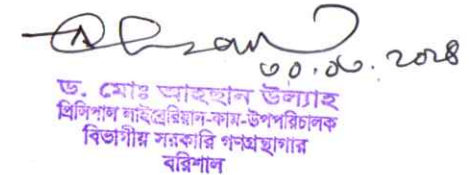 ৩০.০৬.২০২৪
ড. মোঃ আহছান উল্যাহ
প্রিন্সিপাল লাইব্রেরিয়ান-কাম-উপপরিচালক
বিভাগীয় সরকারি গণগ্রন্থাগার
বরিশাল